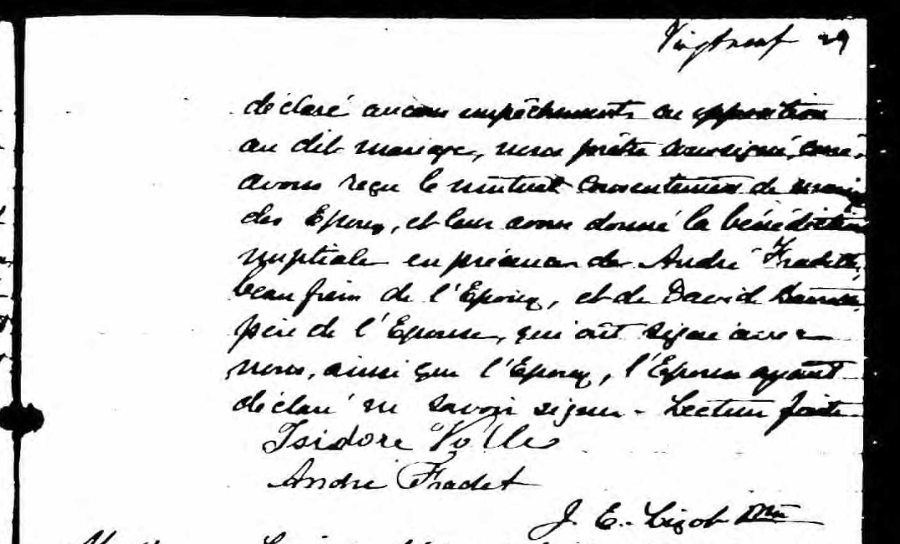 Vingt neuf 29
déclaré aucuns empêchements ou opposition
au dit mariage, nous prêtre soussigné, curé,
avons reçu le mutuel consentement de mariage
des Epoux, et leur avons donné la bénédiction
nuptiale en présence de André Fradette,
beau frère de l'Epoux, et de David
père de l'Epouse, qui ont signé avec
nous, ainsi que l'Epoux, l'Epouse ayant
déclaré ne savoir signer - Lecture faite
Isidore
André Fradet
J. E. Lizot Ptre